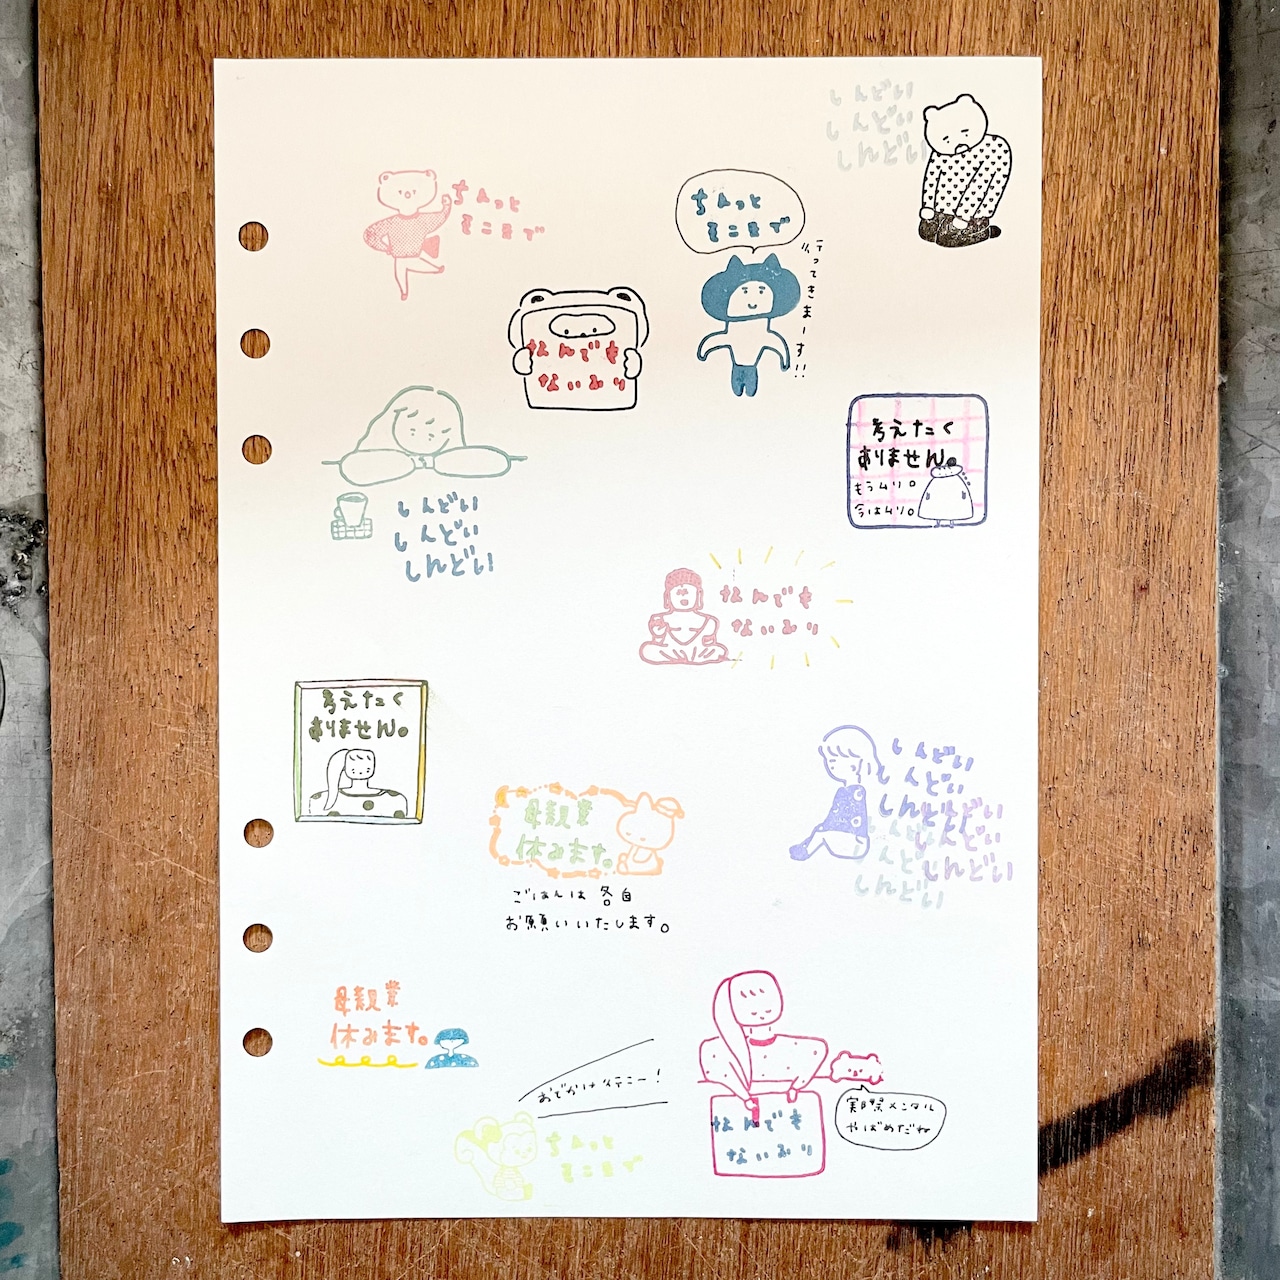 しんどい
しんどい
しんどい
ちょっと
そこまで
ちょっと
そこまで
行ってきまーす!!
なんでも
ないふり
考えたく
ありません。
もうムリ。
今はムリ。
しんどい
しんどい
しんどい
なんでも
ないふり
考えたく
ありません。
しんどい
しんどい
しんどい
しんどい
しんどい
しんどい
しんどい
しんどい
しんどい
母親業
休みます。
ごはんは各自
お願いいたします。
母親業
休みます。
おでかけ行こー!
ちょっと
そこまで
なんでも
ないふり
実際メンタル
やばめだね